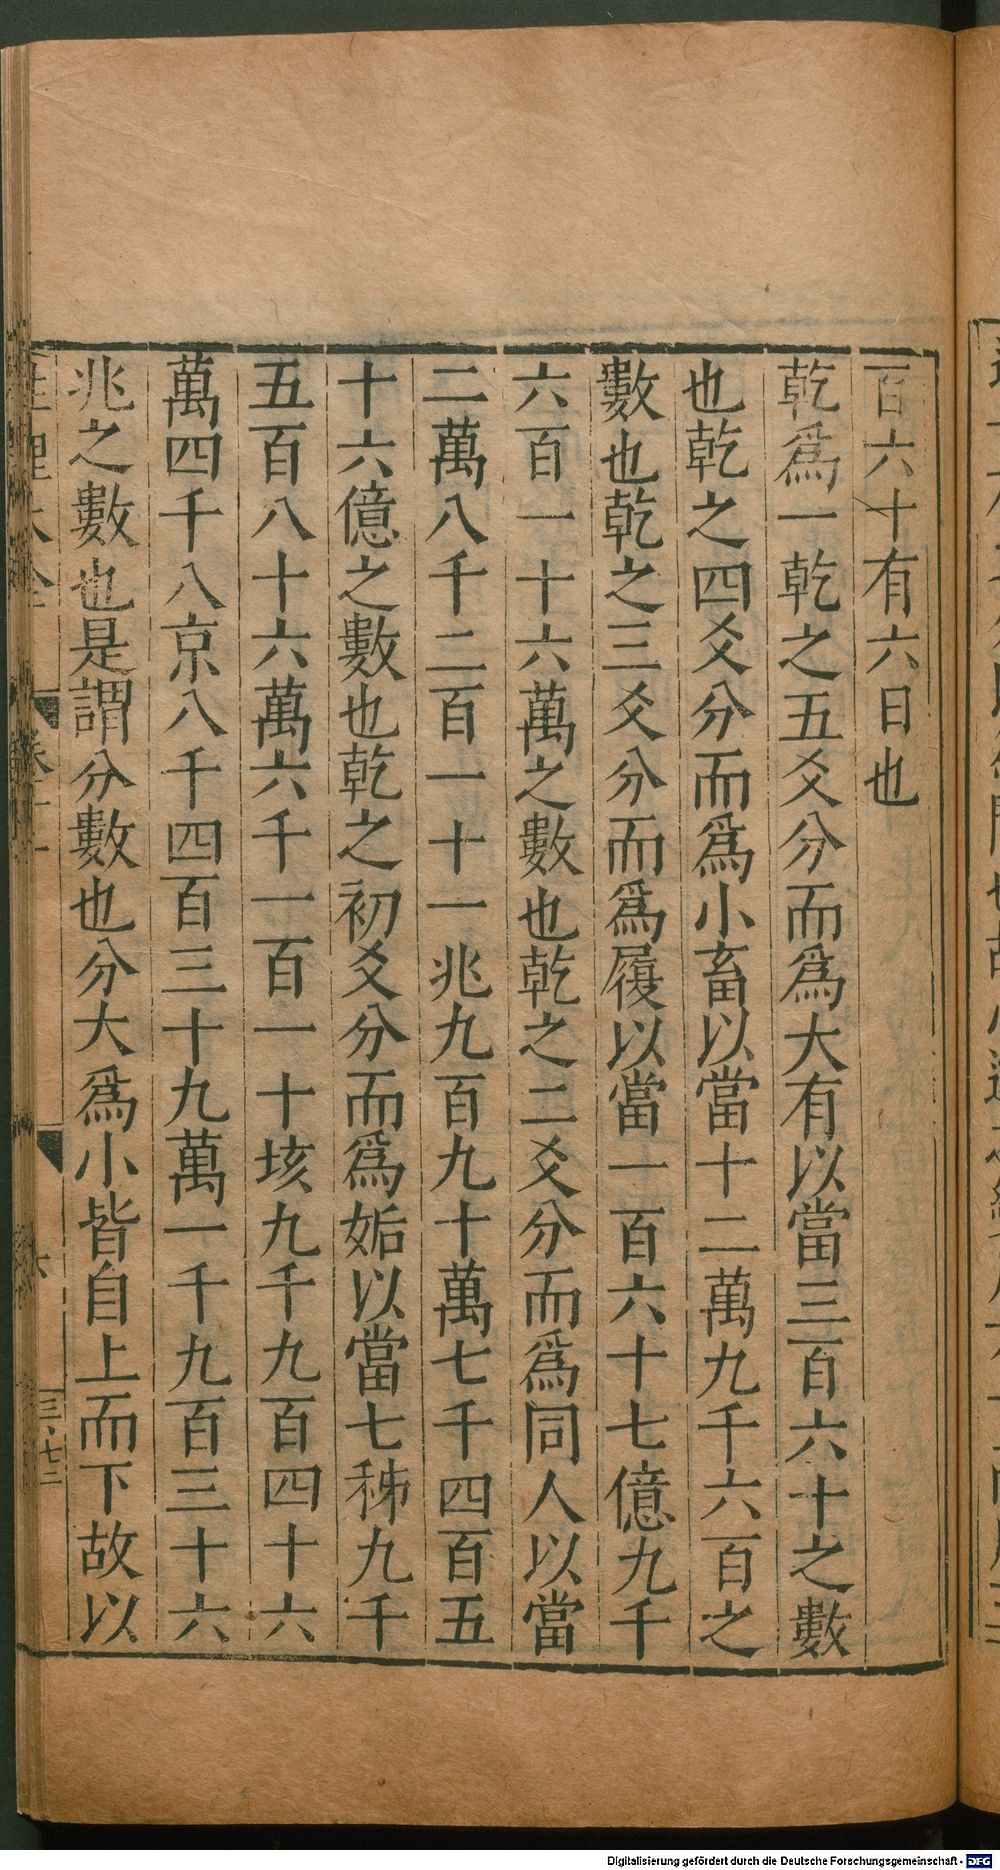 百六十有六日也
乾爲一乾之五爻分而爲大有以當三百六十之數
也乾之四爻分而爲小畜以當十二萬九千六百之
數也乾之三爻分而爲履以當一百六十七億九千
六百一十六萬之數也乾之二爻分而爲同人以當
二萬八千二百一十一兆九百九十萬七千四百五
十六億之數也乾之初爻分而爲姤以當七秭九千
五百八十六萬六千一百一十垓九千九百四十六
萬四千八京八千四百三十九萬一千九百三十六
兆之數也是謂分數也分大爲小皆自上而下故以
性理大全
卷十一
六
三・七二
Digitalisierung gefördert durch die Deutsche Forschungsgemeinschaft - DFG